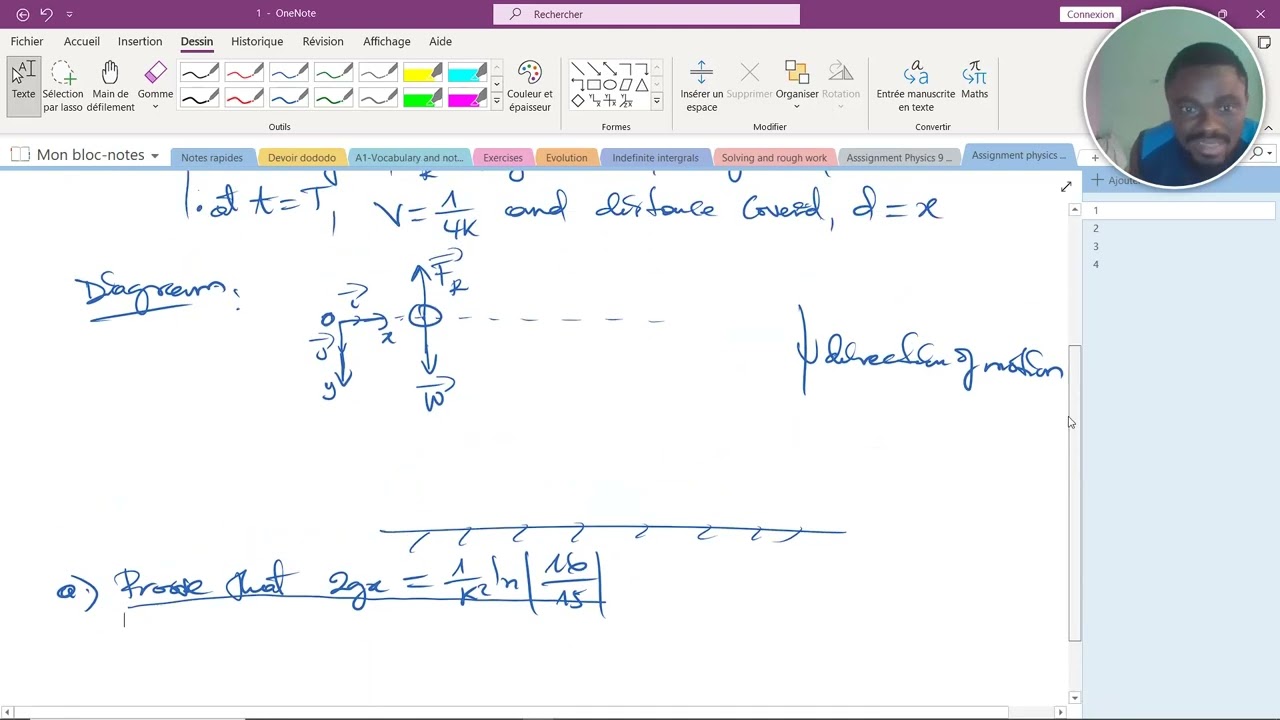 1 - OneNote
Rechercher
Connexion
Fichier Accueil Insertion Dessin Historique Révision Affichage Aide
Texte
Sélection par lasso
Main de défilement
Gomme
Couleur et épaisseur
Insérer un espace
Supprimer
Organiser
Rotation
Entrée manuscrite en texte
Maths
Outils Formes Modifier Convertir
Mon bloc-notes
Notes rapides Devoir dododo A1-Vocabulary and not... Exercises Evolution Indefinite intergrals Solving and rough work Asssignment Physics 9 ... Assignment physics ...
Ajoute
1
2
3
4
at t = T, V = 1/4K and distance covered, d = x
Diagram:
F_R
O i x
j
y
W
direction of motion
a.) Prove that 2gx = 1/K² ln|16/15|